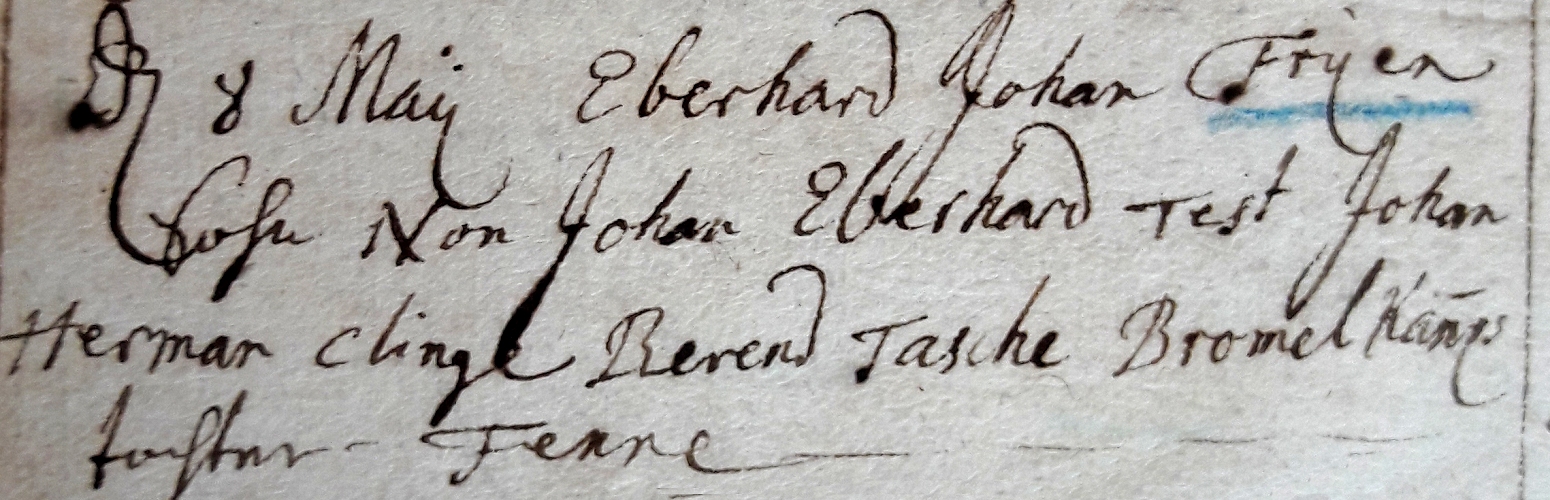 D 8 Maÿ Eberhard Johan Frÿen
Sohn Von Johan Eberhard Test Johan
Herman Clinge Berend Tasche Bromelkamps
tochter Fenne